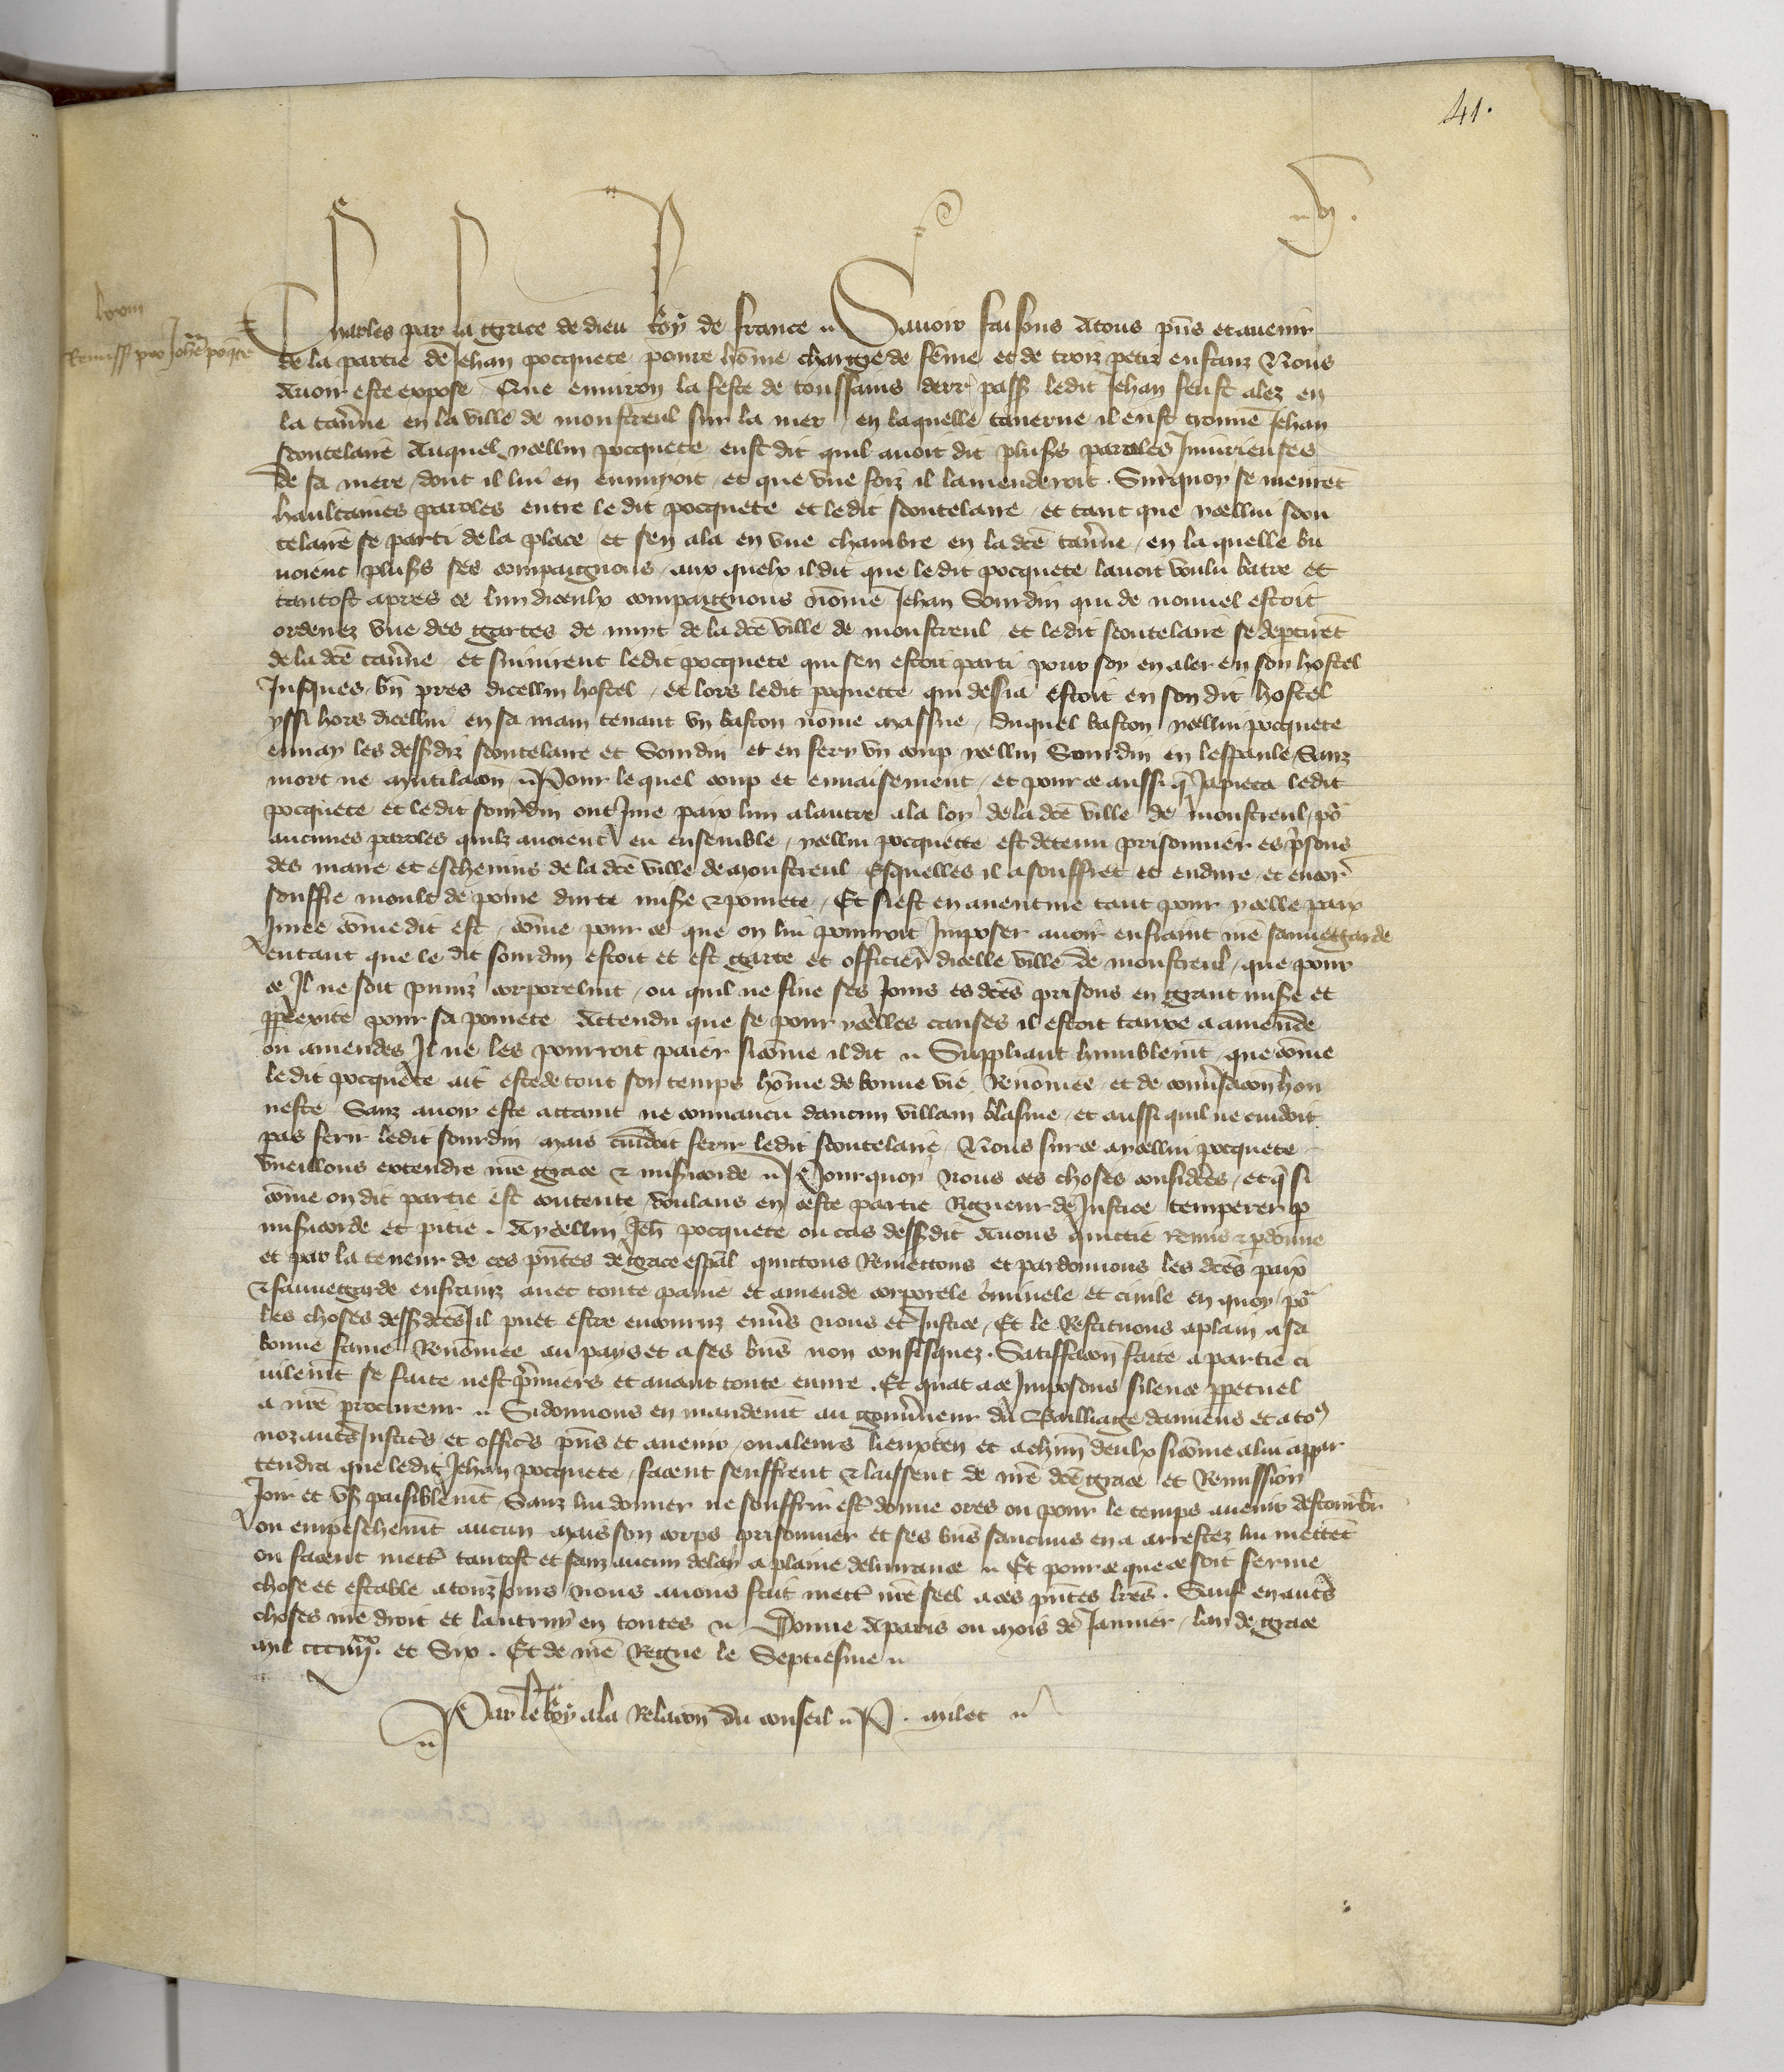 41.
Remiss pro Johe poqte
Charles par la grace de dieu Roy de france Savoir faisons Atous pns et avenir
de la partie de Jehan pocquete povre home charge de feme et de trois petiz enfanz Nous
Avoir este expose Que environ la feste de toussains derr pass ledit Jehan feust alez en
la tavne en la ville de monstreul sur la mer en laquelle taverne il eust trouve Jehan
scoutelaire Auquel ycellui pocquete eust dit quil avoit dit pluss paroles Iniurieuses
de sa mere dont il lui en ennuyoit et que une foiz il lamenderoit. Surquoy se meuret
haultaines paroles entre le dit pocquete et ledit scoutelaire et tant que ycellui scou
telaire se parti de la place et sen ala en une chambre en la dce tavne en la quelle bu
voient pluss ses compaignons aux quelx il dit que le dit pocquete lavoit voulu batre et
tantost apres ce lun diceulx compaignons nome Jehan Sourdin qui de nouvel estoit
ordenez une des gartes de nuyt de la dce ville de monstreul et ledit scoutelaire se deptiret
de la dce tavne et suivirent ledit pocquete qui sen estoit parti pour soy en aler en son hostel
Jusques bn pres dicellui hostel et lors ledit poquette qui desia estoit en son dit hostel
yssi hors dicellui en sa main tenant un baston nome massue duquel baston ycellui pocquete
envay les dessdiz scoutelaire et Sourdin et en fery un coup ycellui Sourdin en lespaule Sanz
mort ne mutilacon Pour lequel coup et envaisement et pour ce aussi q Japieca ledit
pocquete et ledit sourdin ont Jure paix lun a lautre a la loy de la dce ville de monstreul ps
aucunes paroles quilz avoient eu ensemble ycellui pocquette est detenu prisonnier es psons
des maire et eschevins de la dce ville de monstreul Esquelles il a souffret et endure et encor
souffre moult de poine durte mise et povrete Et si est en aventure tant pour ycelle paix
Juree come dit est come pour ce que on lui pourroit Imposer avoir enfraint nre sauvegarde
entant que le dit sourdin estoit et est garte et officier dicelle ville de monstreul que pour
ce Il ne soit puniz corporelmt ou quil ne fine ses Jours es dces prisons en grant mise et
pplexite pour sa povrete Attendu que se pour ycelles causes il estoit tauxe a amende
ou amendes Il ne les pourroit paier sicome il dit Suppliant humblemt que come
ledit pocquete ait este de tout son temps home de bonne vie Renomee et de convsacon hon
neste Sanz avoir este attaint ne convaincu daucun villain blasme et aussi quil ne cuidoit
pas ferir ledit sourdin mais cuidoit ferir ledit scoutelaire Nous sur ce a ycellui pocquete
vueillons extendre nre grace et misicorde Pourquoy Nous ces choses considees et q si
come on dit partie est contente voulans en ceste partie Rigueur de Justice temperer p
misicorde et pitie. A ycellui Jeh pocquete ou cas dessdit Avons quictie remis et pdonne
et par la teneur de ces pntes de grace espal quictons Remettons et pardonnons les dces paix
et sauvegarde enfrainz avec toute paine et amende corporele criminele et civile en quoy ps
les choses dessdces Il puet estre encouruz envs nous et Justice Et le Restituons aplain a sa
bonne fame Renomee au pays et a ses bns non confisquez. Satisfacon faite a partie ci
vilemt se faite nest pmiers et avant toute euvre. Et quat a ce Imposons silence ppetuel
a nre procureur Si donnons en mandemt au gouvneur du Bailliage damiens et a to9
noz autrs Justics et offics pns et avenir ou a leurs lieuxten et a chun deulx sicome a lui appar
tendra que ledit Jehan pocquete facent seuffrent et laissent de nre dce grace et Remission
Joir et us paisiblemt Sanz lui donner ne souffrir est donne ores ou pour le temps avenir destourbr
ou empeschemt aucun mais son corps prisonnier et ses bns saucuns en a arrestez lui mettet
ou facent mett tantost et sanz aucun delay a plaine delivrance Et pour ce que ce soit ferme
chose et estable a touz Jours nous avons fait mett nre seel a ces pntes lres. Sauf en autrs
choses nre droit et lautruy en toutes Donne A paris ou mois de Janvier lan de grace
mil ccciiijxx. et Six. Et de nre Regne le Septiesme
Par le Roy a la Relacon du conseil P. milet